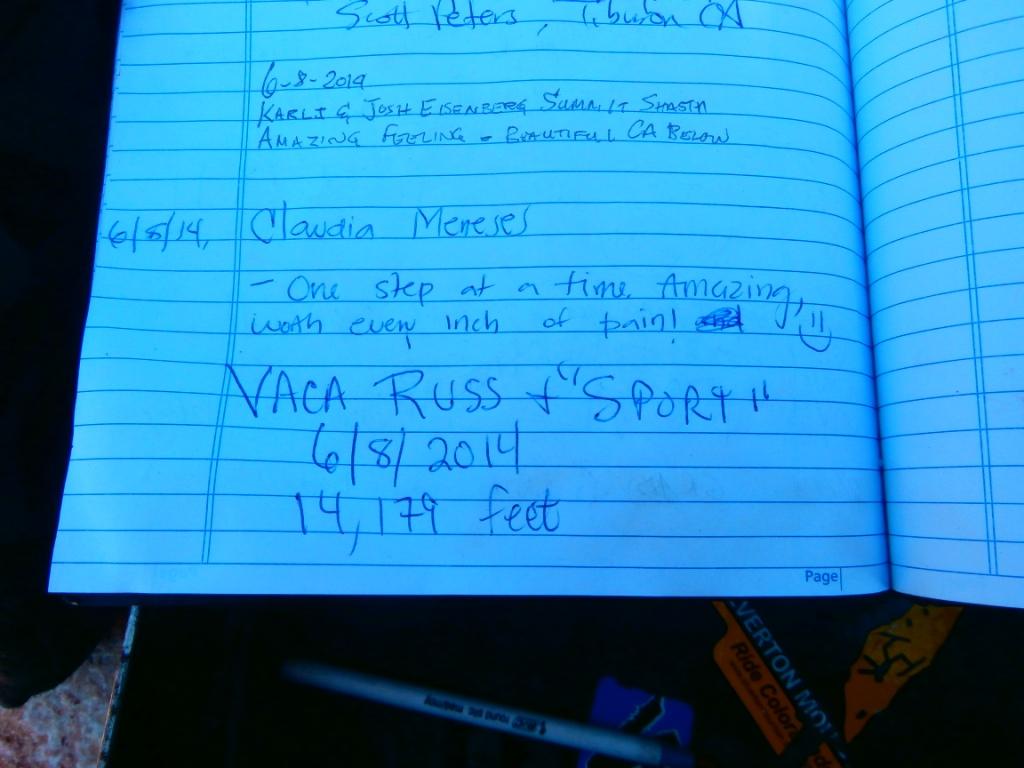 Scott Peters, Tiburon CA
6-8-2014
KARLI & JOSH EISENBERG SUMMIT SHASTA
AMAZING FEELING - BEAUTIFUL CA BELOW
6/8/14, Claudia Meneses
- One step at a time. Amazing,
worth every inch of pain!
VACA RUSS + "SPORT"
6/8/2014
14,179 feet
Page
VERTON MO
Ride Color
BIC round stic